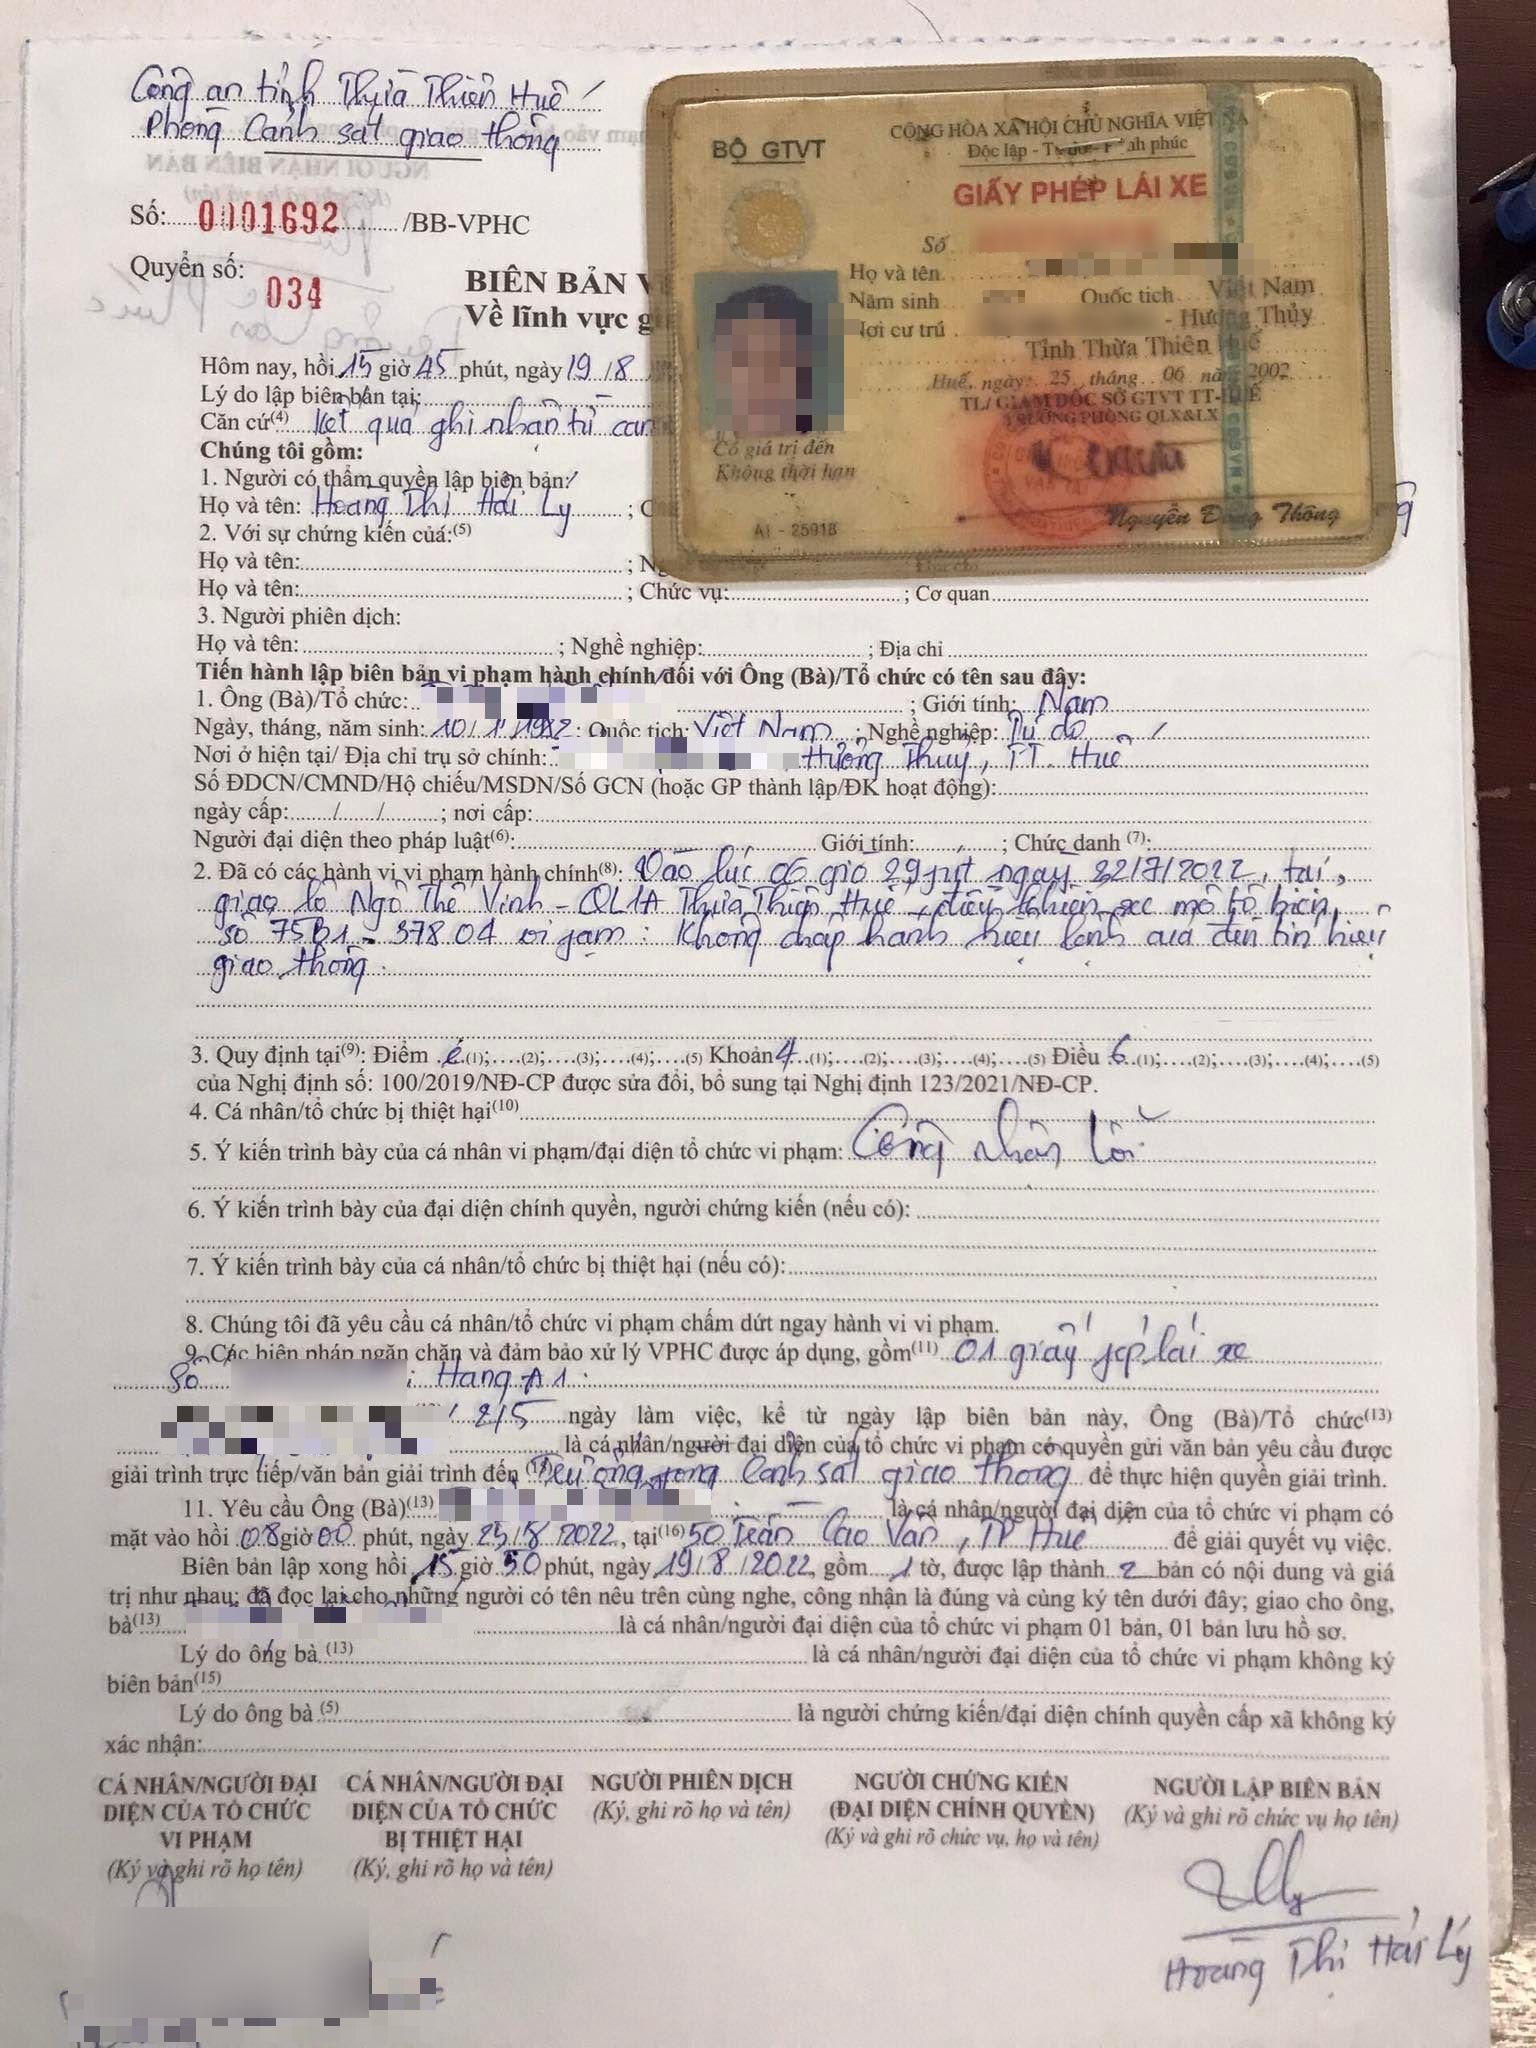 Công an tỉnh Thừa Thiên Huế
Phòng Cảnh sát giao thông
Số: 0001692 /BB-VPHC
Quyển số: 034
BIÊN BẢN V
Về lĩnh vực gi
Hôm nay, hồi 15 giờ 45 phút, ngày 19/8
Lý do lập biên bản tại:
Căn cứ(4) Kết quả ghi nhận từ cam
Chúng tôi gồm:
1. Người có thẩm quyền lập biên bản:
Họ và tên: Hoàng Thị Hải Lý ; C
2. Với sự chứng kiến của:(5)
Họ và tên: ; Ng
Họ và tên: ; Chức vụ: ; Cơ quan
3. Người phiên dịch:
Họ và tên: ; Nghề nghiệp: ; Địa chỉ
BỘ GTVT
CỘNG HÒA XÃ HỘI CHỦ NGHĨA VIỆT NA
Độc lập - Tự do - Hạnh phúc
GIẤY PHÉP LÁI XE
Số
Họ và tên
Năm sinh Quốc tịch Việt Nam
Nơi cư trú - Hương Thủy
Tỉnh Thừa Thiên Huế
Huế, ngày: 25 tháng 06 năm 2002
TL/ GIÁM ĐỐC SỞ GTVT TT-HUẾ
TRƯỞNG PHÒNG QLX&LX
Có giá trị đến
Không thời hạn
AI - 25918
Nguyễn Đăng Thông
Tiến hành lập biên bản vi phạm hành chính đối với Ông (Bà)/Tổ chức có tên sau đây:
1. Ông (Bà)/Tổ chức: ; Giới tính: Nam
Ngày, tháng, năm sinh: 10/ 1/1982 ; Quốc tịch: Việt Nam ; Nghề nghiệp: Tự do
Nơi ở hiện tại/ Địa chỉ trụ sở chính: Hương Thuỷ, TT. Huế
Số ĐDCN/CMND/Hộ chiếu/MSDN/Số GCN (hoặc GP thành lập/ĐK hoạt động):
ngày cấp: / / ; nơi cấp:
Người đại diện theo pháp luật(6): Giới tính: ; Chức danh (7):
2. Đã có các hành vi vi phạm hành chính(8): Vào lúc 06 giờ 29 phút ngày 22/7/2022, tại
giao lộ Ngô Thế Vinh - QL1A Thừa Thiên Huế, điều khiển xe mô tô biển
số 75B1 - 378.04 vi phạm: Không chấp hành hiệu lệnh của đèn tín hiệu
giao thông.
3. Quy định tại(9): Điểm e.(1);....(2);....(3);....(4);....(5) Khoản 4.(1);....(2);....(3);....(4);....(5) Điều 6.(1);....(2);....(3);....(4);....(5)
của Nghị định số: 100/2019/NĐ-CP được sửa đổi, bổ sung tại Nghị định 123/2021/NĐ-CP.
4. Cá nhân/tổ chức bị thiệt hại(10)
5. Ý kiến trình bày của cá nhân vi phạm/đại diện tổ chức vi phạm: Công nhận lỗi
6. Ý kiến trình bày của đại diện chính quyền, người chứng kiến (nếu có):
7. Ý kiến trình bày của cá nhân/tổ chức bị thiệt hại (nếu có):
8. Chúng tôi đã yêu cầu cá nhân/tổ chức vi phạm chấm dứt ngay hành vi vi phạm.
9. Các biện pháp ngăn chặn và đảm bảo xử lý VPHC được áp dụng, gồm(11) 01 giấy phép lái xe
Số ; Hạng A1.
2/5 ngày làm việc, kể từ ngày lập biên bản này, Ông (Bà)/Tổ chức(13)
là cá nhân/người đại diện của tổ chức vi phạm có quyền gửi văn bản yêu cầu được
giải trình trực tiếp/văn bản giải trình đến (14) Trưởng phòng Cảnh sát giao thông để thực hiện quyền giải trình.
11. Yêu cầu Ông (Bà)(13) là cá nhân/người đại diện của tổ chức vi phạm có
mặt vào hồi 08 giờ 00 phút, ngày 25/8/2022, tại(16) 50 Trần Cao Vân, TP Huế để giải quyết vụ việc.
Biên bản lập xong hồi 15 giờ 50 phút, ngày 19/8/2022, gồm 1 tờ, được lập thành 2 bản có nội dung và giá
trị như nhau; đã đọc lại cho những người có tên nêu trên cùng nghe, công nhận là đúng và cùng ký tên dưới đây; giao cho ông,
bà(13) là cá nhân/người đại diện của tổ chức vi phạm 01 bản, 01 bản lưu hồ sơ.
Lý do ông bà (13) là cá nhân/người đại diện của tổ chức vi phạm không ký
biên bản(15)
Lý do ông bà (5) là người chứng kiến/đại diện chính quyền cấp xã không ký
xác nhận:
CÁ NHÂN/NGƯỜI ĐẠI DIỆN CỦA TỔ CHỨC VI PHẠM
(Ký và ghi rõ họ tên)
CÁ NHÂN/NGƯỜI ĐẠI DIỆN CỦA TỔ CHỨC BỊ THIỆT HẠI
(Ký, ghi rõ họ và tên)
NGƯỜI PHIÊN DỊCH
(Ký, ghi rõ họ và tên)
NGƯỜI CHỨNG KIẾN
(ĐẠI DIỆN CHÍNH QUYỀN)
(Ký và ghi rõ chức vụ, họ và tên)
NGƯỜI LẬP BIÊN BẢN
(Ký và ghi rõ chức vụ họ tên)
Hoàng Thị Hải Lý